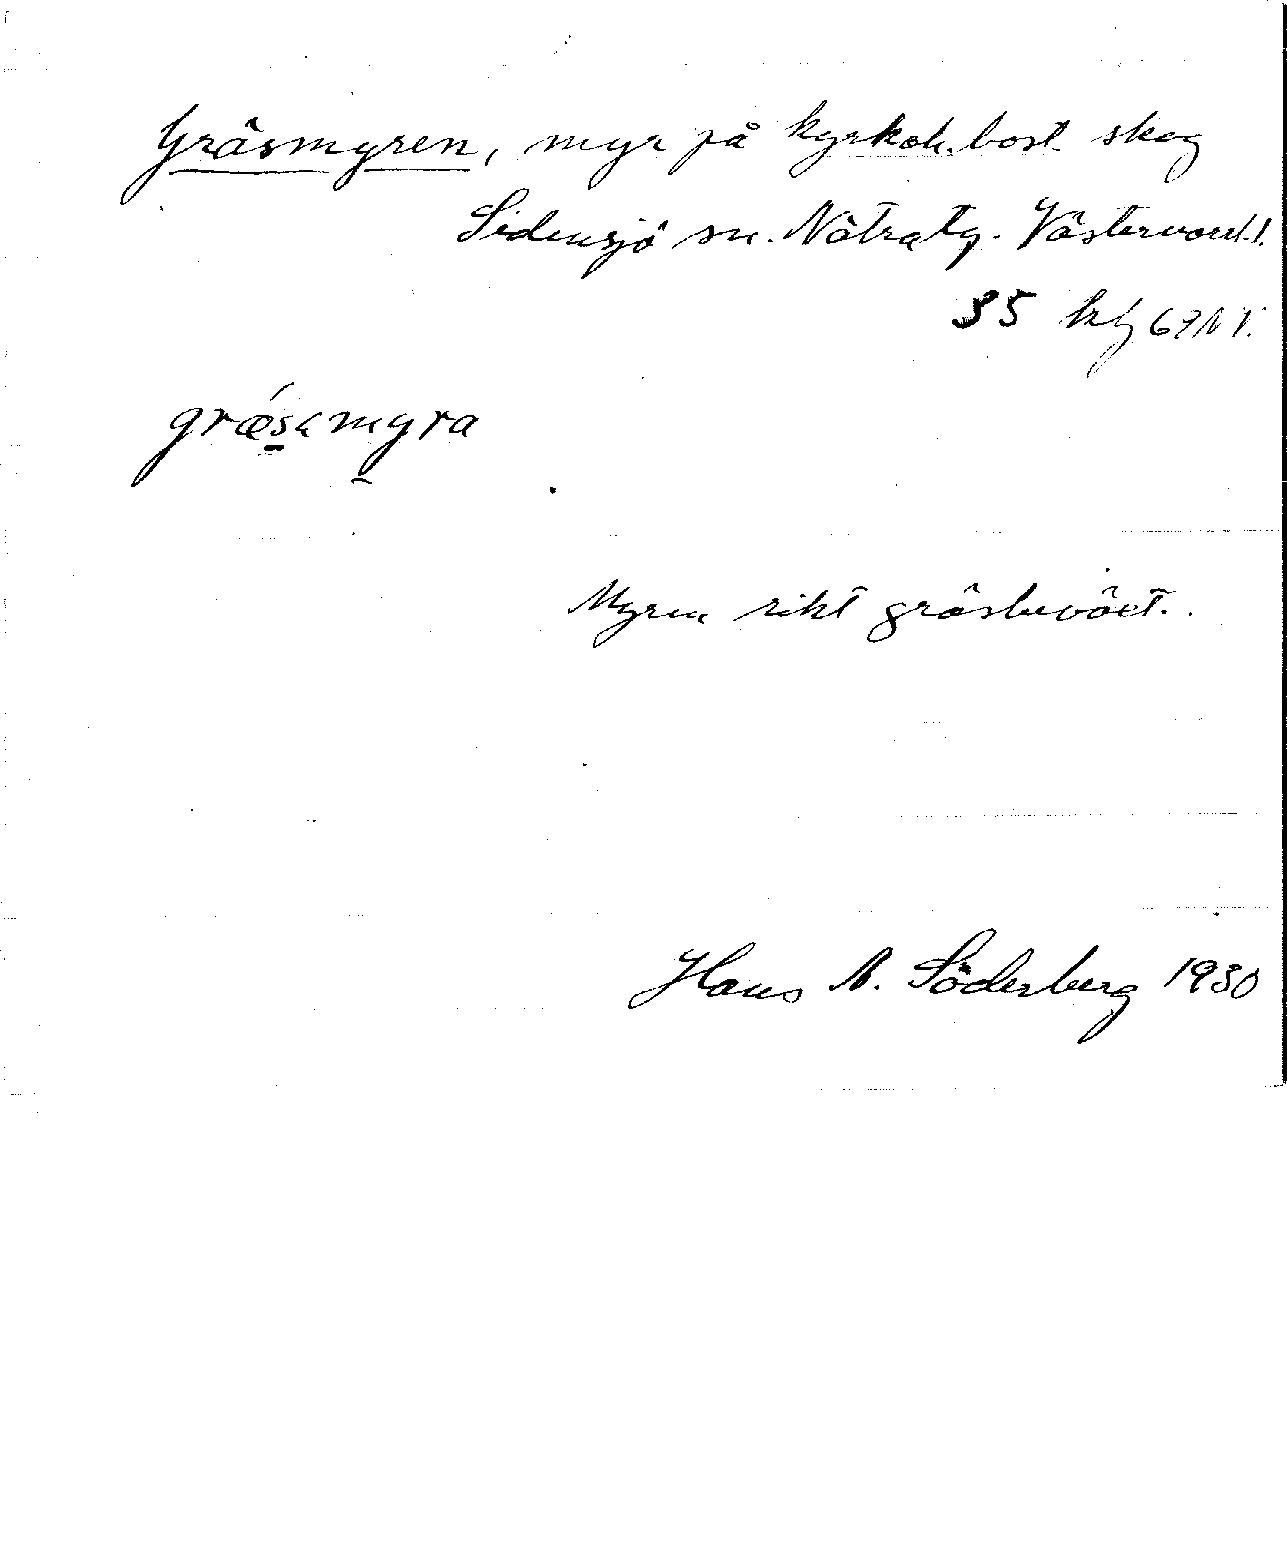 Gräsmyren, myr på kyrkoh. bost. skog
Sidensjö sn. Nätra tg. Västernorrl. l.
35 kbl 67 NV.
græsamyra
Myren rikt gräsbeväxt.
Hans A. Söderberg 1930